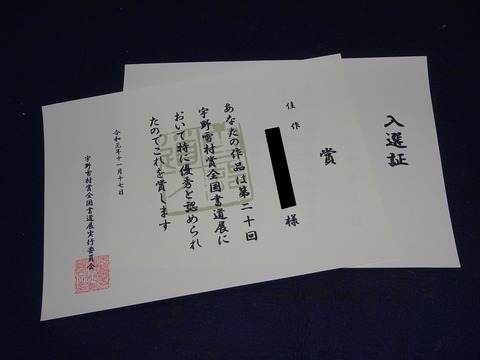 入選証
賞
佳作
様
あなたの作品は第二十回
宇野雪村賞全国書道展に
おいて特に優秀と認められ
たのでこれを賞します
令和元年十一月十七日
宇野雪村賞全国書道展実行委員会